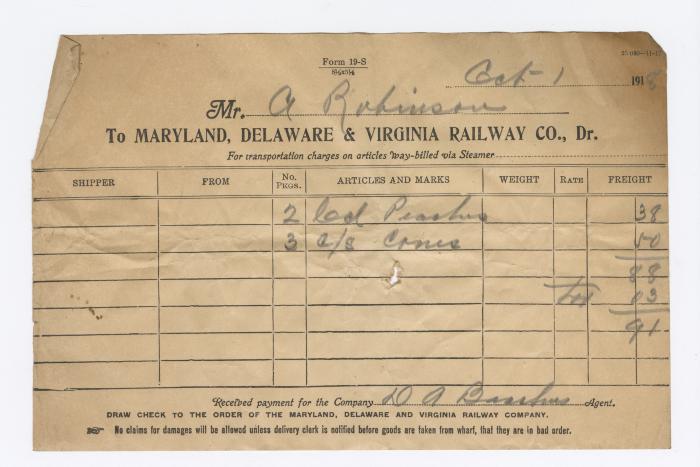 Form 19-S
8½x5½
Oct-1 1918
Mr. A Robinson
To MARYLAND, DELAWARE & VIRGINIA RAILWAY CO., Dr.
For transportation charges on articles way-billed via Steamer
SHIPPER FROM No. Pkgs. ARTICLES AND MARKS WEIGHT RATE FREIGHT
2 Peaches 38
3 c/s Cones 50
88
03
91
Received payment for the Company D A Agent.
DRAW CHECK TO THE ORDER OF THE MARYLAND, DELAWARE AND VIRGINIA RAILWAY COMPANY.
No claims for damages will be allowed unless delivery clerk is notified before goods are taken from wharf, that they are in bad order.